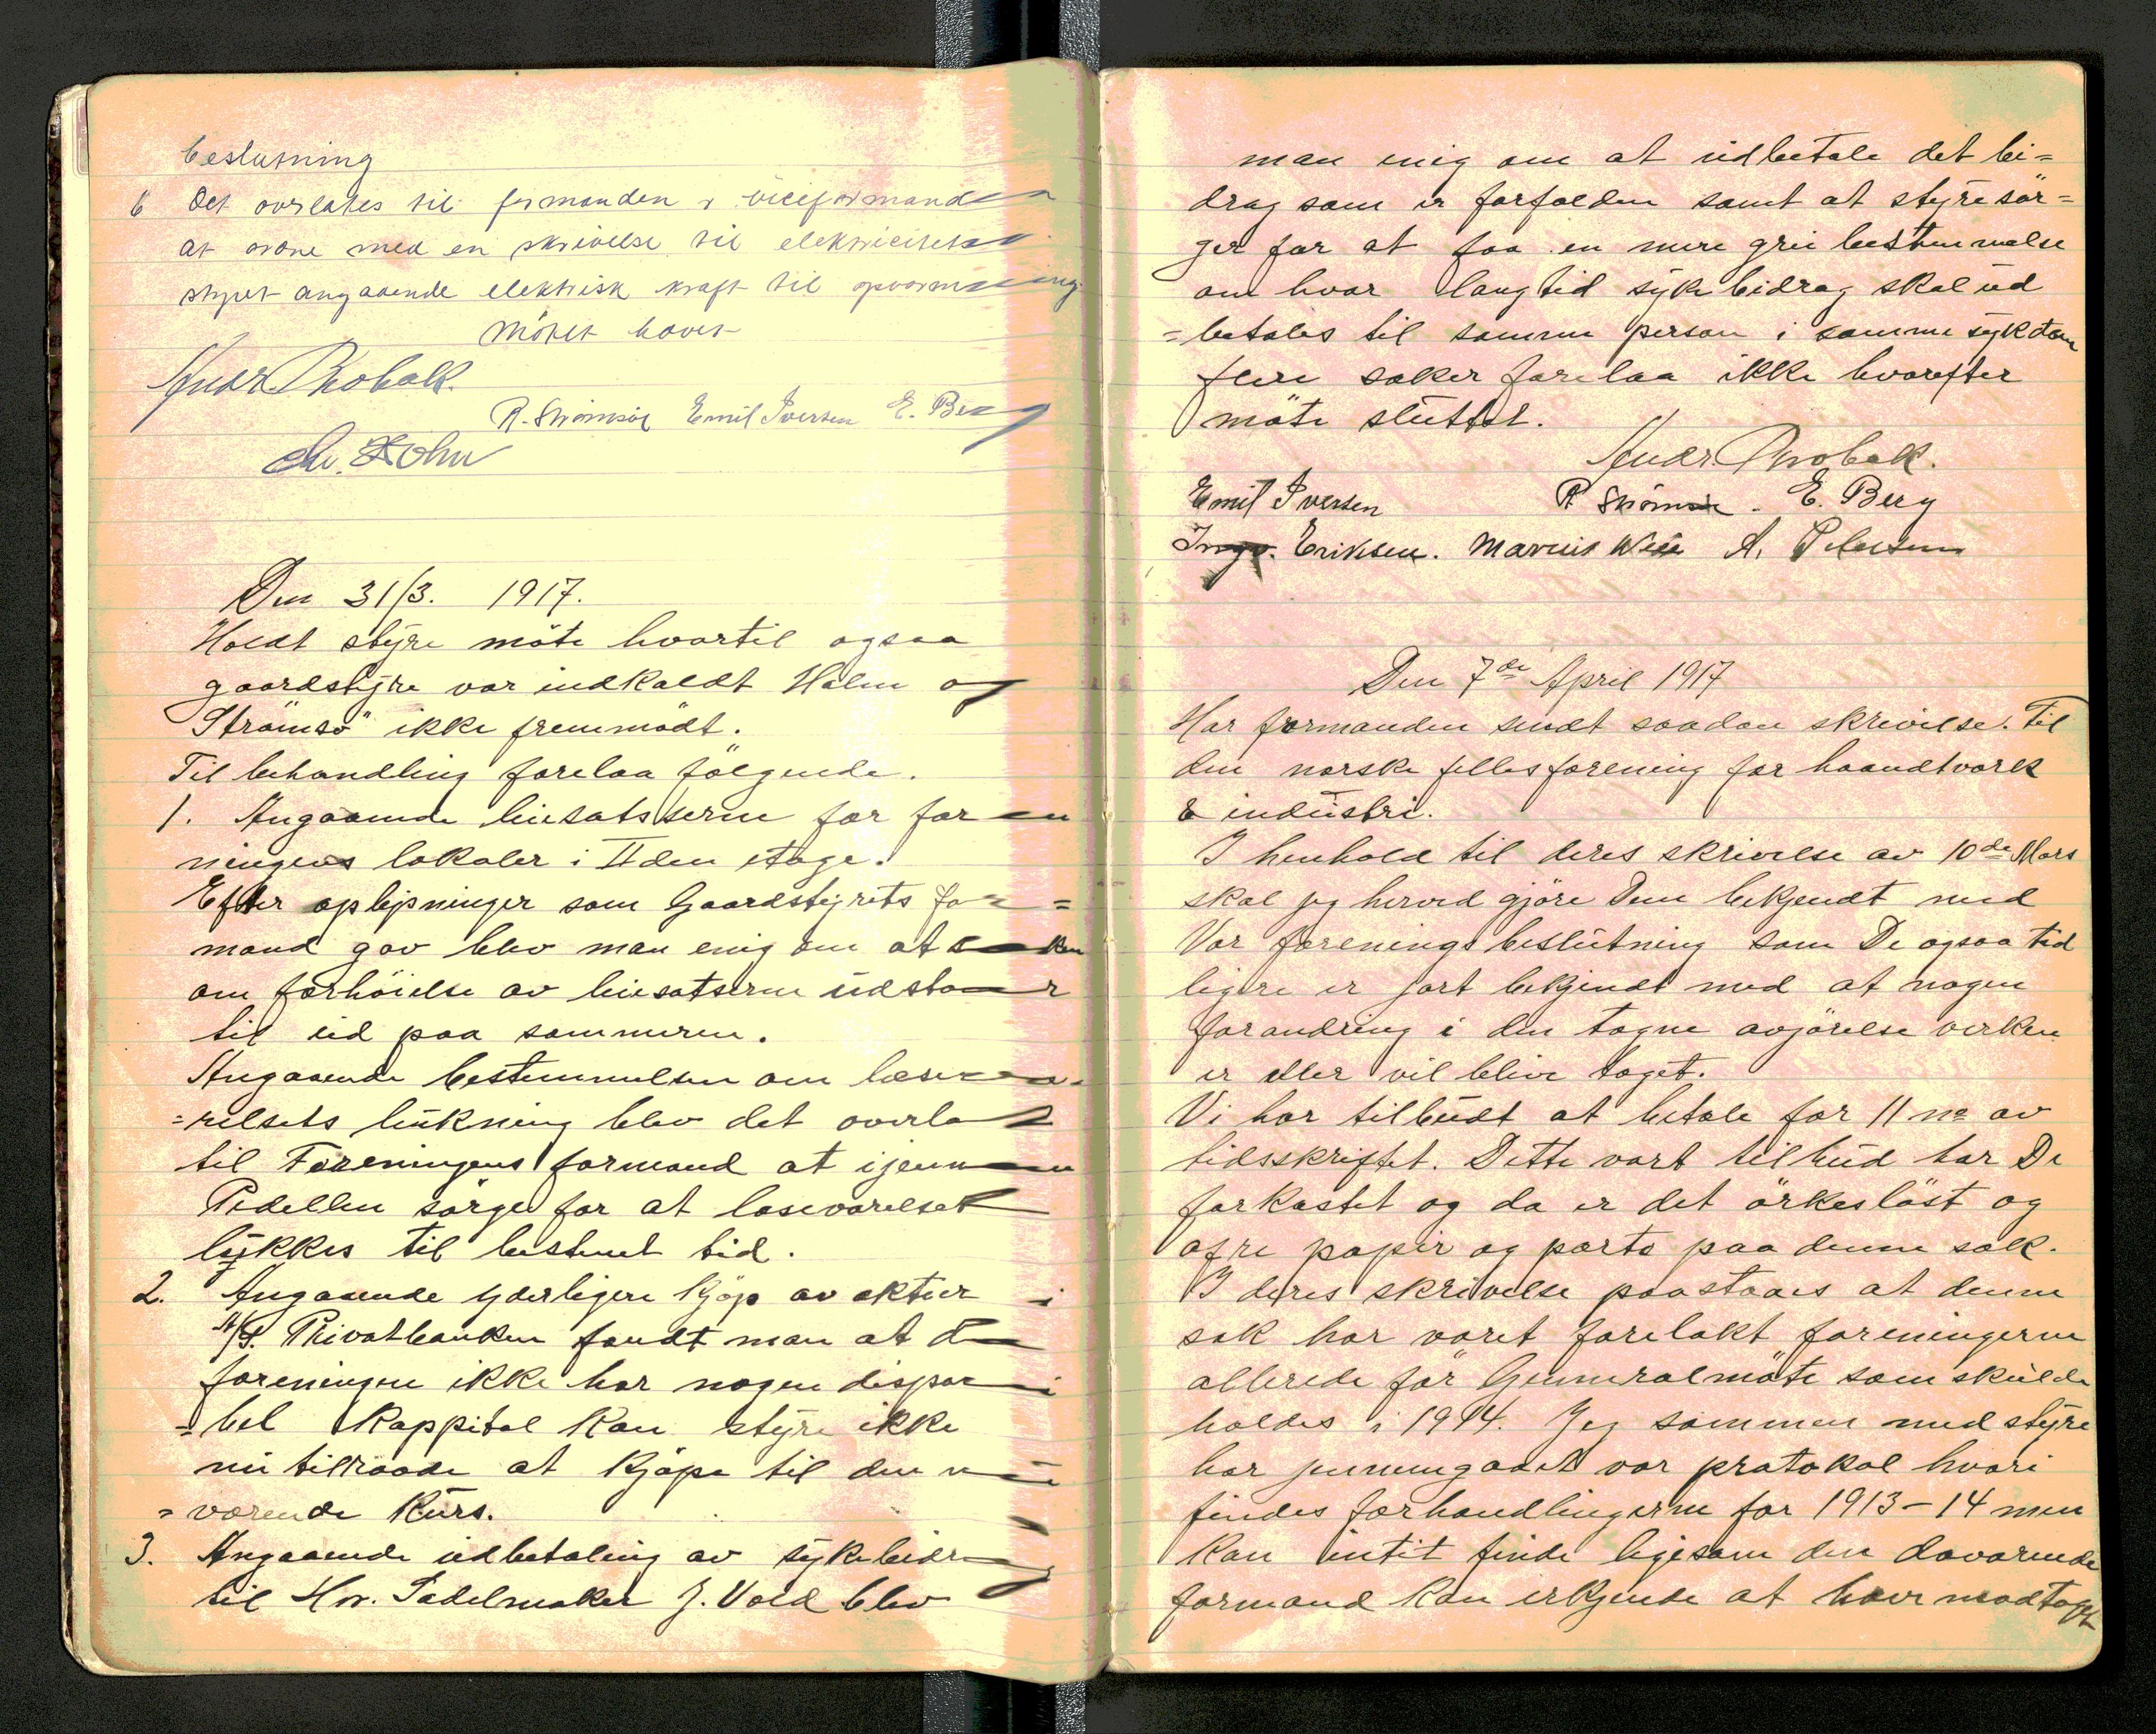 beslutning
6 Det overlates til formanden & viceformanden
at ordne med en skrivelse til elektricitets
styret angaaende elektrisk kraft til opvarmning.
Møtet hævet
Andr. Probak.
R. Strømsø Emil Iversen E. Berg
Chr. Holm
Den 31/3. 1917.
Holdt styre møte hvortil ogsaa
gaardstyre var indkaldt Holm og
Strømsø ikke fremmødt.
Til behandling forelaa følgende.
1. Angaaende leiesatsserne for for en
ningens lokaler i II den etage.
Efter oplysninger som Gaardstyrets for=
mand gav blev man enig om at saken
om forhøielse av leiesatserne udstaar
til ud paa sommeren.
Angaaende bestemmelsen om læseva-
=relsets lukning blev det overlat
til Foreningens formand at ijennem
Pedellen sørge for at læseværelset
lykkes til bestemt tid.
2. Angaaende yderligere kjøp av aktier i
A/S. Privatbanken fandt man at da
foreningen ikke har nogen disponi
=bel kappital kan styre ikke
nu tilraade at kjøpe til den nu
=værende kurs.
3. Angaaende udbetaling av sykebidrag
til Hr. Sadelmaker J. Vold blev
man enig om at udbetale det bi=
drag som er forfalden samt at styre sør=
ger for at faa en mere grei bestemmelse
om hvor lang tid sykebidrag skal ud
=betales til samme person i samme sykdom
flere saker forelaa ikke hvorefter
møte sluttet.
Andr. Probak.
Emil Iversen R Strømsø. E. Berg
Ingv. Eriksen. Marius Wiie A. Petersen
Den 7de April 1917
Har formanden sendt saadan skrivelse. Til
den norske fellesforening for haandtverk
& industri.
I henhold til deres skrivelse av 10de Mars
skal jeg herved gjøre Dem bekjendt med
Vor forenings beslutning som De ogsaa tid
ligere er gjort bekjendt med at nogen
forandring i den tagne avgjørelse verken
er eller vil blive taget.
Vi har tilbudt at betale for 11 no av
tidsskriftet. Dette vort tilbud har De
forkastet og da er det ørkesløst og
ofre papir og porto paa denne sak.
I deres skrivelse paastaaes at denne
sak har været forelakt foreningerne
allerede før Generalmøte som skulde
holdes i 1914. Jeg sammen med styre
har jennemgaaet vor protokol hvori
findes forhandlingerne for 1913-14 men
kan intet finde ligesom den daværende
formand kan erkjende at have modtaget